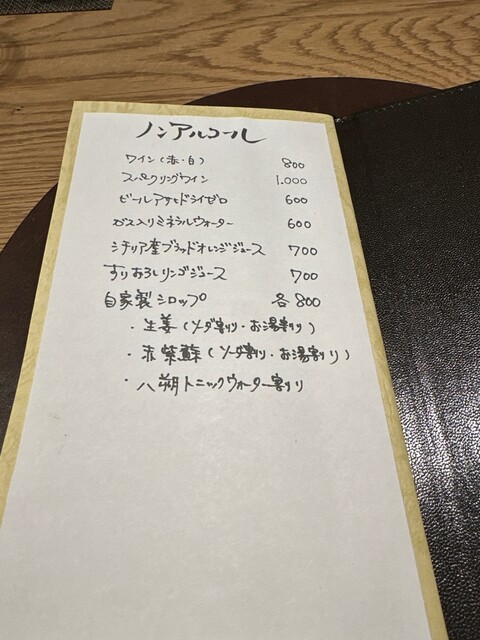 ノンアルコール
ワイン(赤・白) 800
スパークリングワイン 1.000
ビールアサヒドライゼロ 600
ガス入りミネラルウォーター 600
シチリア産ブラッドオレンジジュース 700
すりおろしリンゴジュース 700
自家製シロップ 各800
・生姜(ソーダ割り・お湯割り)
・赤紫蘇(ソーダ割り・お湯割り)
・八朔トニックウォーター割り